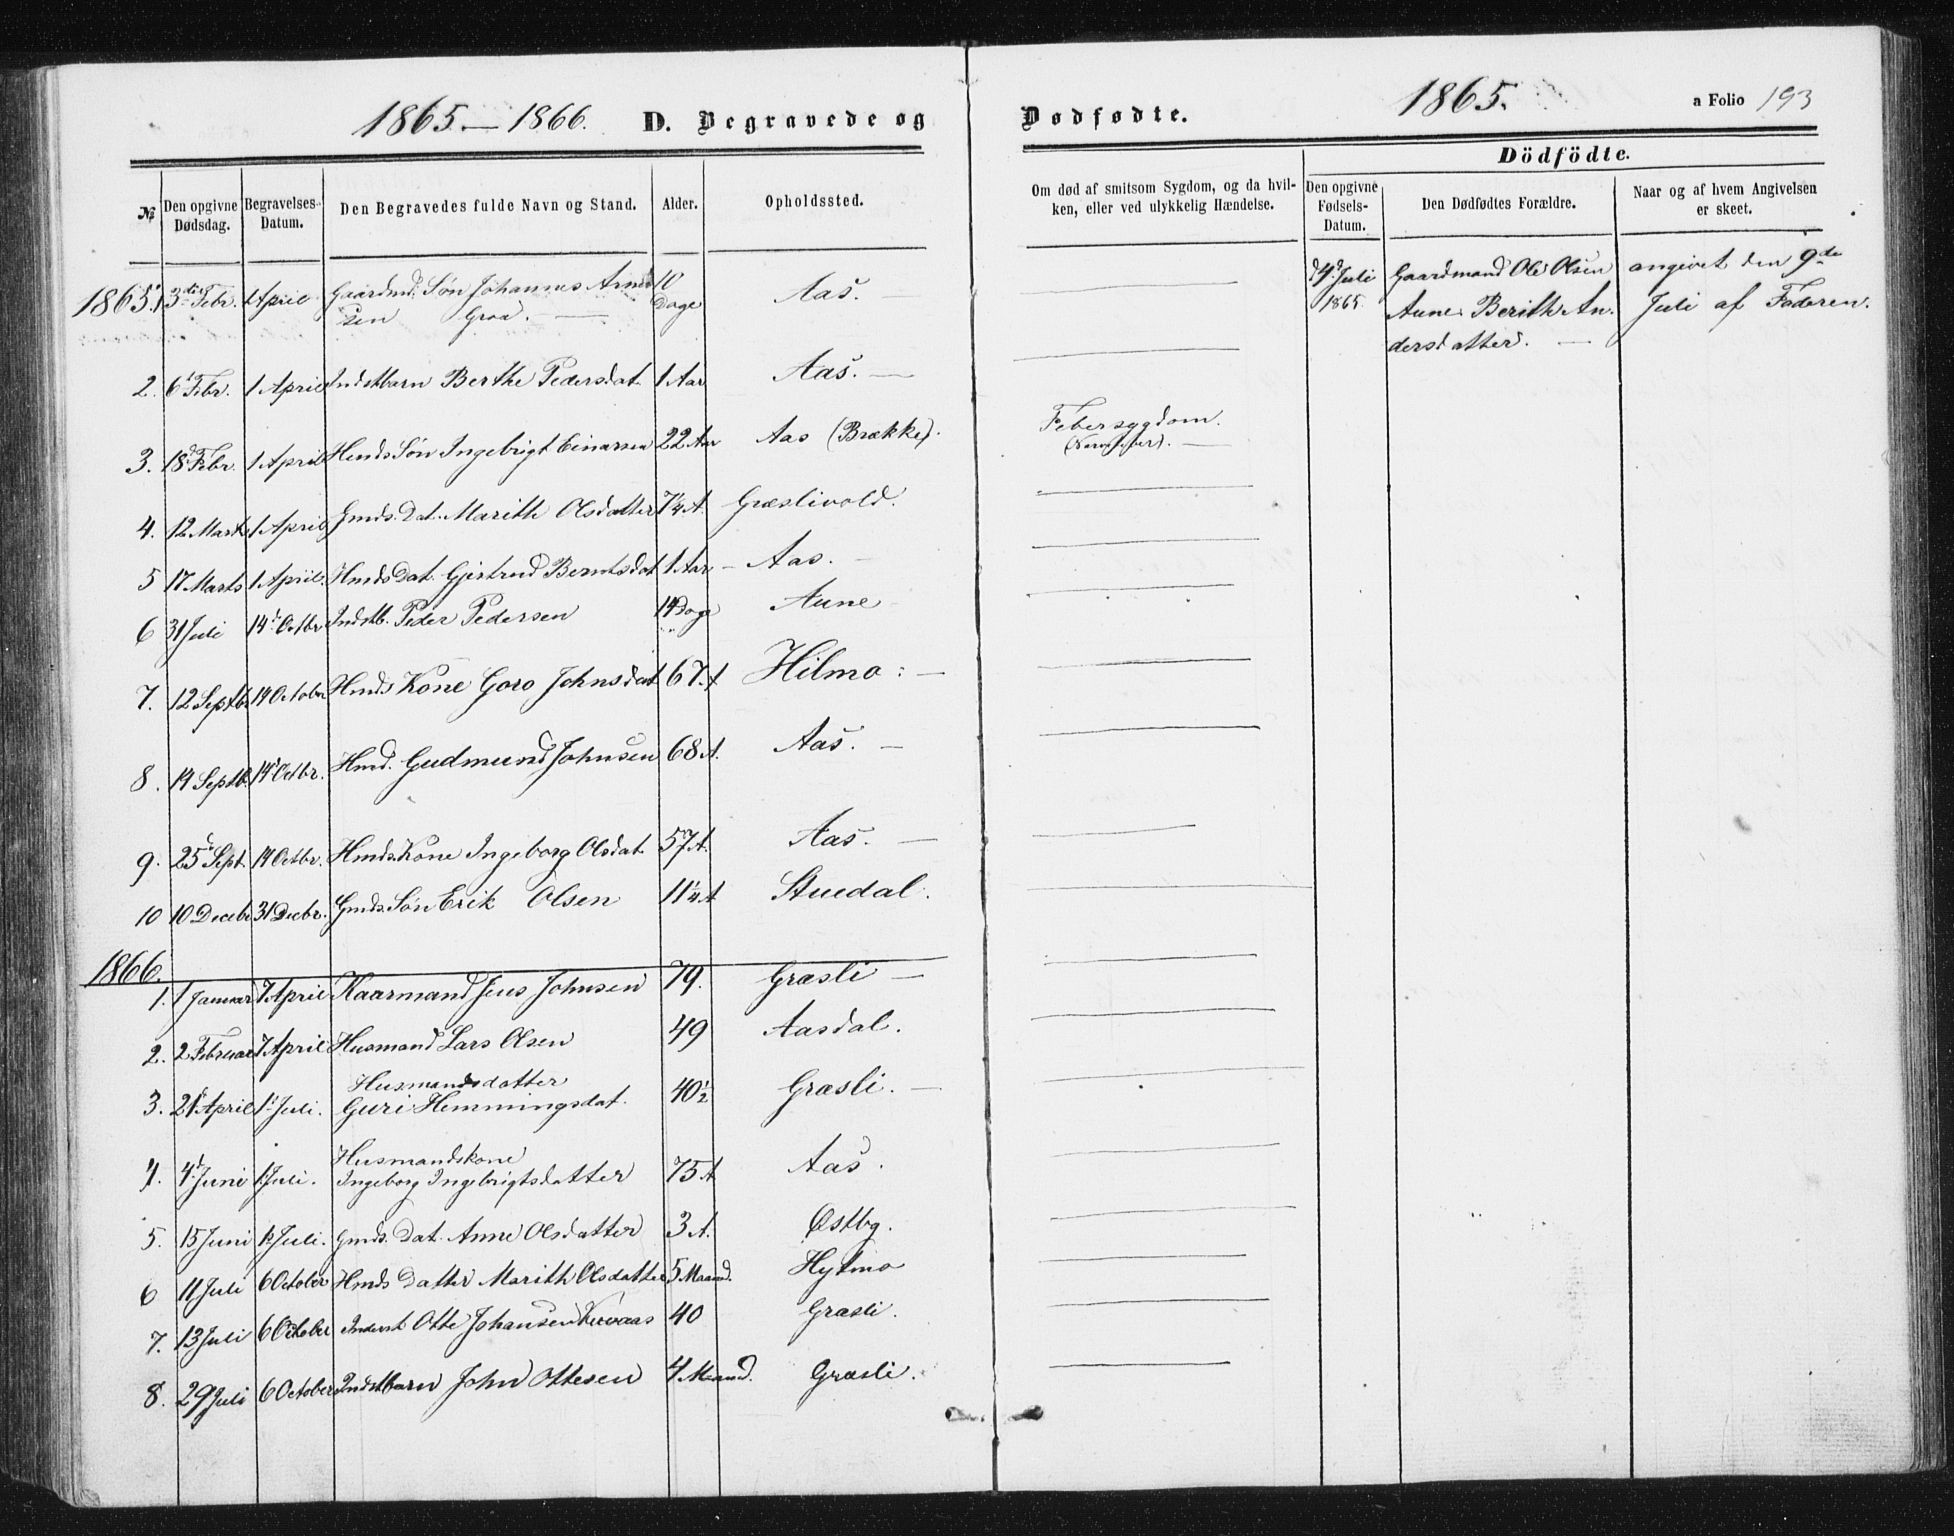 1865 — 1866. D. Begravede og Dødfødte. 1865. a Folio 193
Dödfödte.
№ Den opgivne Dødsdag. Begravelses-Datum. Den Begravedes fulde Navn og Stand. Alder. Opholdssted.
Om død af smitsom Sygdom, og da hvil-
ken, eller ved ulykkelig Hændelse.
Den opgivne Fødsels-Datum. Den Dødfødtes Forældre. Naar og af hvem Angivelsen er skeet.
1865. 1 3die Febr. 1 April Gaardmd. Søn Johannes Arnt 10 Aas.
sen Groa. — Dage
2. 6 Febr. 1 April Indstbarn Berthe Pedersdat. 1 Aar Aas. —
3. 18d Febr. 1 April Hmds Søn Ingebrigt Einarsen 22 Aar Aas (Brække). Febersygdom.
(Nervefeber). —
4. 12 Marts 1 April Gmds. Dat. Marith Olsdatter 7¼ A. Græslivold.
5 17 Marts 1 April. Hmds Dat. Gjertrud Berntsdat 1 Aar — Aas. —
6 31 Juli 14d Octbr Indstb. Peder Pedersen 14 Dage Aune —
7. 12 Septbr 14 October Hmds Kone Goro Johnsdat 67. A Hilmo : —
8. 14 Septb. 14d Octbr. Hmd. Gudmund Johnsen 68 A. Aas. —
9. 25d Sept. 14 Octbr. Hmds. Kone Ingeborg Olsdat. 57 A. Aas. —
10 10 Decebr 31 Decbr. Gmds. Søn Erik Olsen 11¼ A Stuedal.
1866.
1. 1 Januar 7 April Kaarmand Jens Johnsen 79. Græsli —
2. 2 Februar 7 April Husmand Lars Olsen 49 Aasdal.
3. 21d April 1d Juli. Husmandsdatter
Guri Hemmingsdat. 40½ Græsli. —
4. 4d Juni 1 Juli. Husmandskone
Ingeborg Ingebrigtsdatter 75 A Aas.
5. 15 Juni 1d Juli. Gmds. Dat. Anne Olsdatter 3 A. Østbg.
6 11 Juli 6 October Hmds Datter Marith Olsdatter 5 Maaned. Hytmo
7. 13 Juli 6 October Inderst Otte Johansen 40 Græsli.
8. 29 Juli 6 October Indstbarn John Ottesen 4 Maaned. Græsli.
d 4d Juli Gaardmand Ole Olsen angivet den 9de
1865. Aune. Berith An- Juli af Faderen.
dersdatter. —